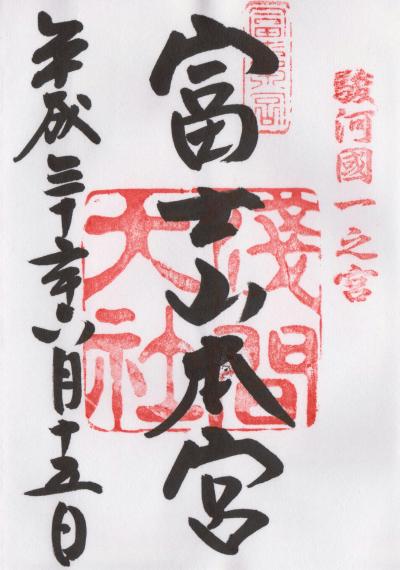 駿河國一之宮
富士山本宮
淺間大社
平成二十六年八月十五日